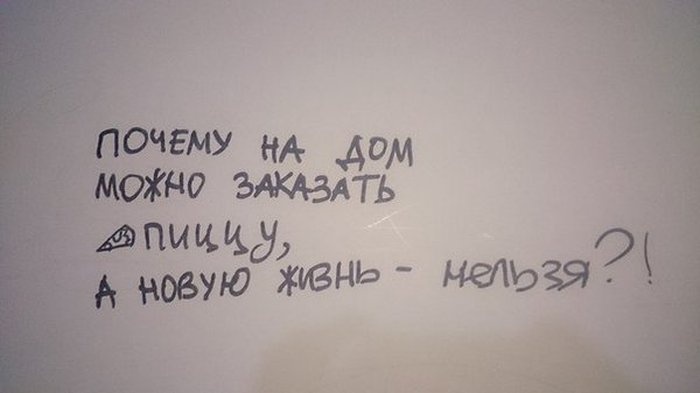 ПОЧЕМУ НА ДОМ
МОЖНО ЗАКАЗАТЬ
ПИЦЦУ,
А НОВУЮ ЖИЗНЬ - НЕЛЬЗЯ?!